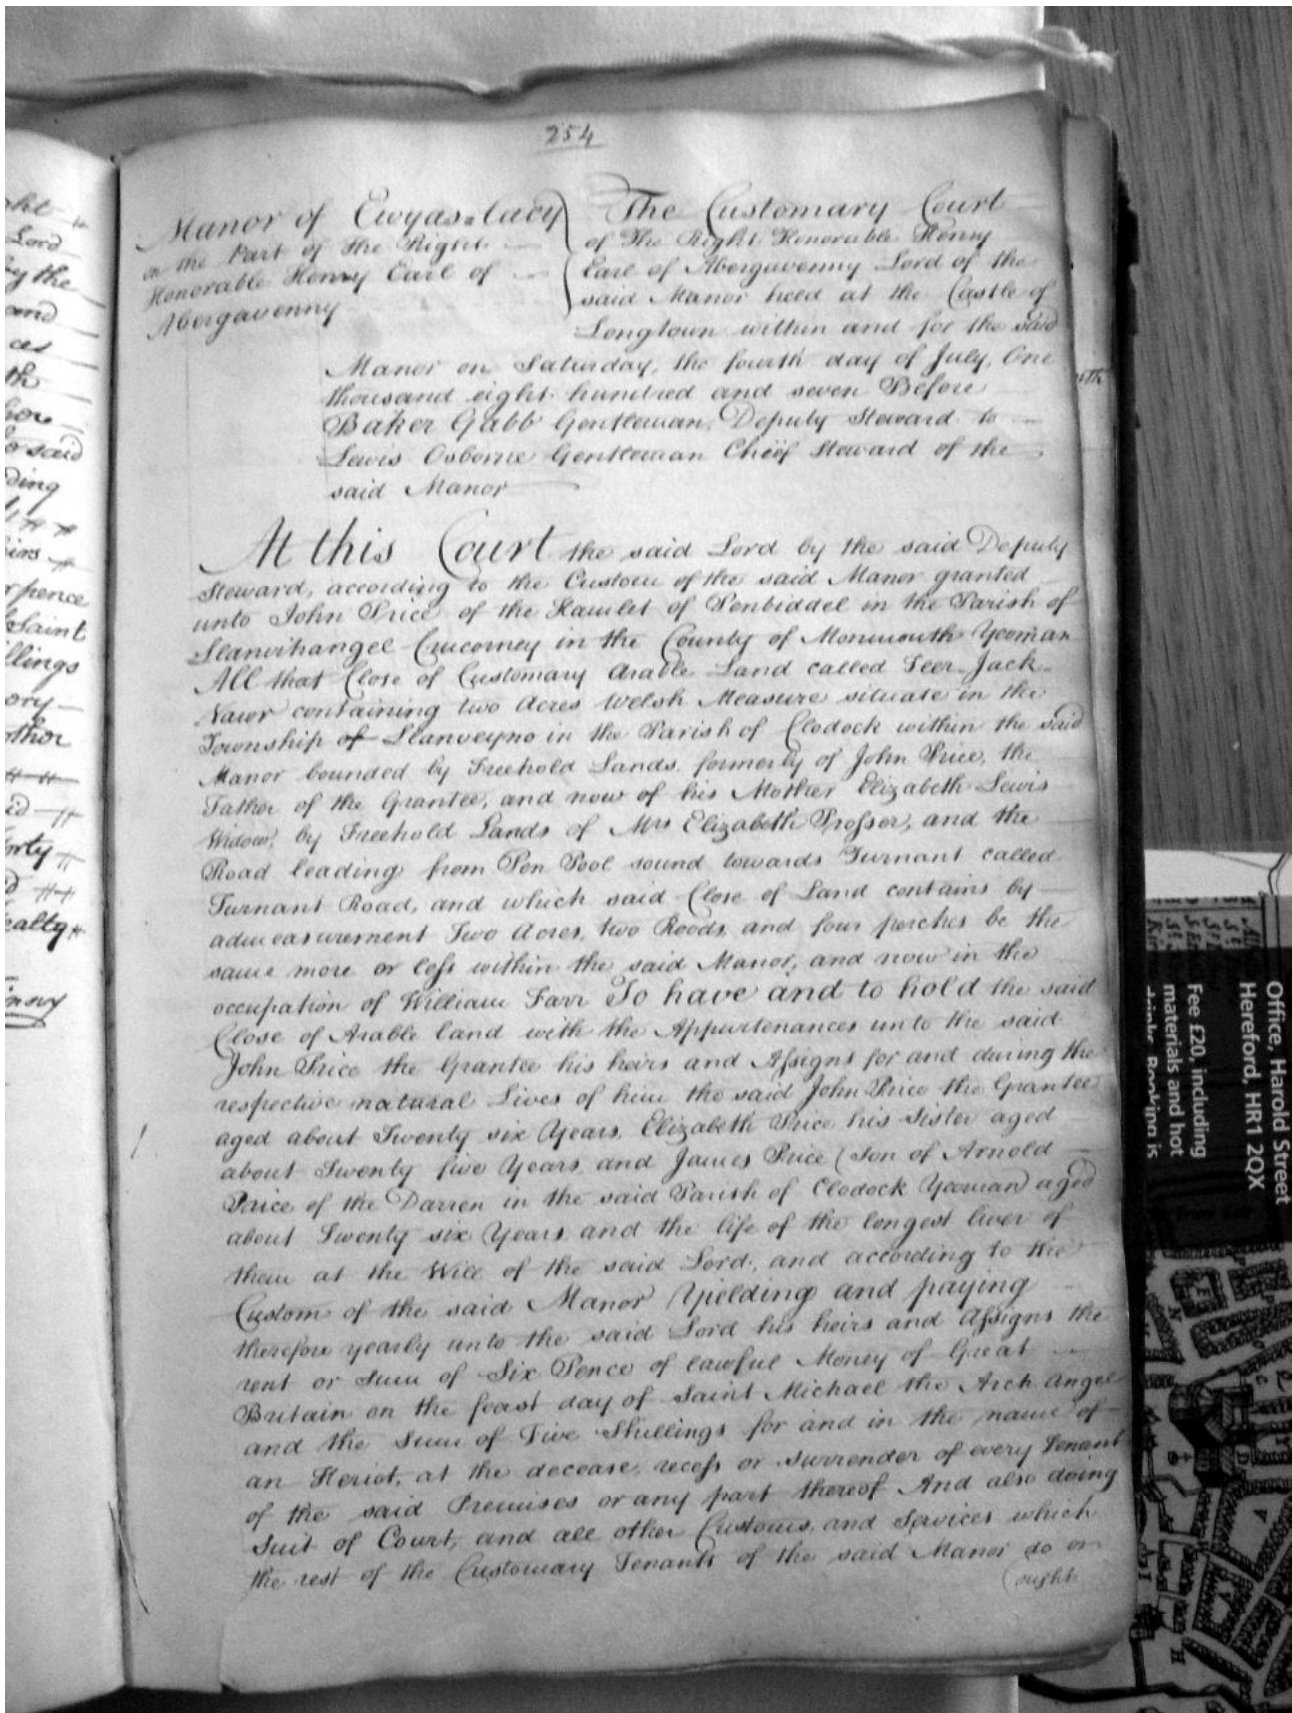 254
Manor of Ewyas=lacy
on the Part of the Right
Honorable Henry Earl of
Abergavenny
The Customary Court
of The Right Honorable Henry
Earl of Abergavenny Lord of the
said Manor held at the Castle of
Longtown within and for the said
Manor on Saturday, the fourth day of July, One
thousand eight hundred and seven Before
Baker Gabb Gentleman, Deputy Steward to
Lewis Osborne Gentleman Chief Steward of the
said Manor
At this Court the said Lord by the said Deputy
Steward, according to the Custom of the said Manor granted
unto John Price of the Hamlet of Penbiddel in the Parish of
Llanvihangel Crucorney in the County of Monmouth Yeoman
All that Close of Customary Arable Land called Jack
containing two Acres Welsh Measure situate in the
Township of Llanveyno in the Parish of Clodock within the said
Manor bounded by Freehold Lands, formerly of John Price, the
Father of the Grantee, and now of his Mother Elizabeth Lewis
Widow, by Freehold Lands of Mrs Elizabeth Prosser, and the
Road leading from Pen Pool sound towards Turnant called
Turnant Road, and which said Close of Land contains by
admeasurement Two Acres, two Roods, and four perches be the
same more or less within the said Manor, and now in the
occupation of William Farr To have and to hold the said
Close of Arable land with the Appurtenances unto the said
John Price the Grantee his heirs and Assigns for and during the
respective natural Lives of him the said John Price the Grantee
aged about Twenty six Years, Elizabeth Price his Sister aged
about Twenty five Years, and James Price (Son of Arnold
Price of the Darren in the said Parish of Clodock Yeoman) aged
about Twenty six Years and the life of the longest liver of
them at the Will of the said Lord, and according to the
Custom of the said Manor Yielding and paying
therefore yearly unto the said Lord his heirs and Assigns the
rent or Sum of Six Pence of lawful Money of Great
Britain on the feast day of Saint Michael the Arch angel
and the Sum of Five Shillings for and in the name of
an Heriot, at the decease, recess or surrender of every Tenant
of the said Premises or any part thereof And also doing
Suit of Court, and all other Customs, and Services which
the rest of the Customary Tenants of the said Manor do or
ought
Lord
by the
and
ces
th
said
ding
pence
Saint
llings
ory
other
forty
ealty
Office, Harold Street
Hereford, HR1 2QX
Fee £20, including
materials and hot
drinks. Booking is